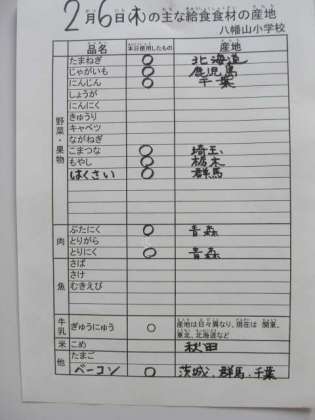 2月6日(木)の主な給食食材の産地
八幡山小学校
品名 本日使用したもの 産地
野菜・果物
たまねぎ ○ 北海道
じゃがいも ○ 鹿児島
にんじん ○ 千葉
しょうが
にんにく
きゅうり
キャベツ
ながねぎ
こまつな ○ 埼玉
もやし ○ 栃木
はくさい ○ 群馬
肉
ぶたにく ○ 青森
とりがら
とりにく ○ 青森
魚
さば
さけ
むきえび
牛乳 ぎゅうにゅう ○ 産地は日々異なり、現在は 関東、
東北、北海道など
米 こめ 秋田
他 たまご
ベーコン ○ 茨城、群馬、千葉